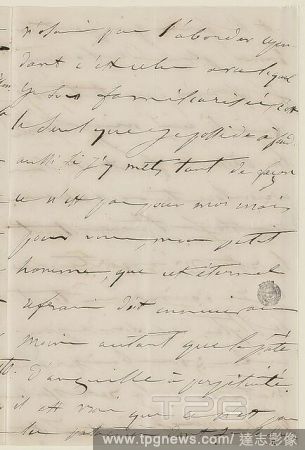 n'osai pas l'aborder cepen
dant c'est celui avec lequel
je suis familiarisée, c'est
le seul que je possède à fond
aussi si j'y mets tant de façon
ce n'est pas pour moi mais
pour vous, mon petit
homme, que cet éternel
refrain doit ennuyer au
moins autant que le pâté
d'anguille à perpétuité.
il est vrai que
TPG
www.tpgnews.com/ 達志影像